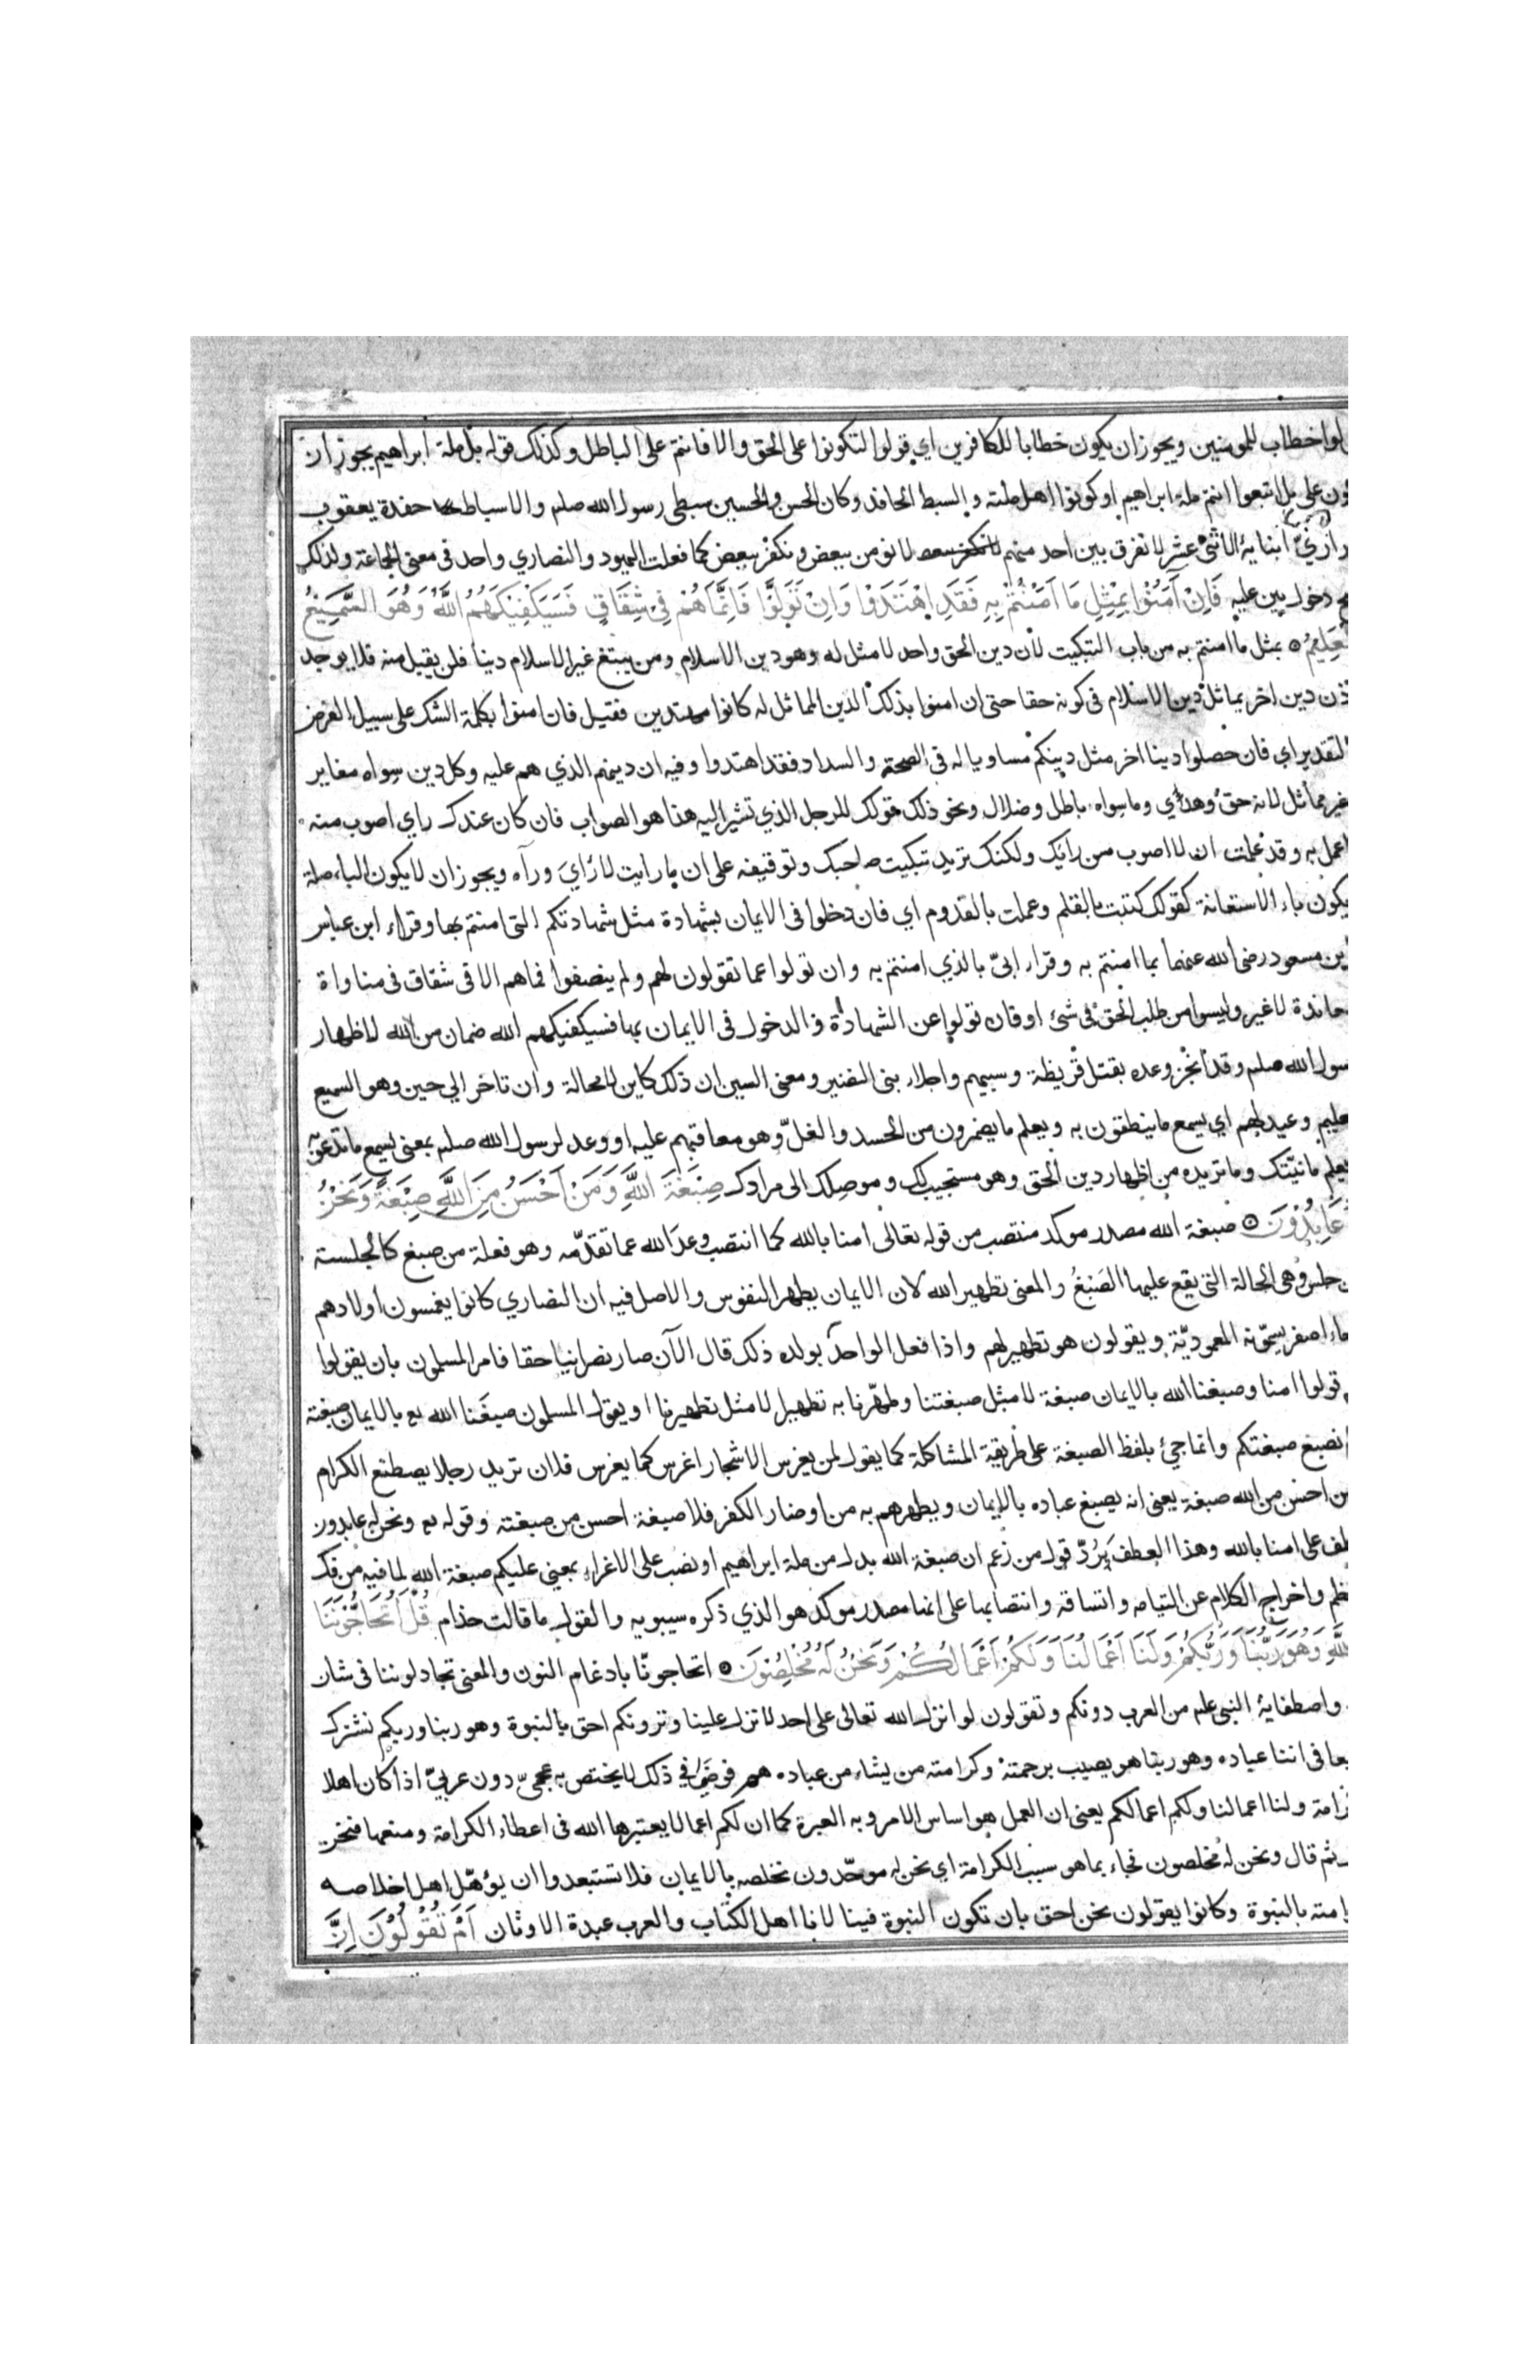 لوا خطاب للمومنين ويجوز ان يكون خطابا للكافرين اي قولوا لتكونوا على الحق والا فانتم على الباطل وكذلك قوله بل ملة ابراهيم يجوز ان
ون على بل اتبعوا انتم ملة ابراهيم او كونوا اهل ملته والسبط الحافد وكان الحسن والحسين سبطى رسول الله صلم والاسباط حفدة يعقوب
راري ابنايه الاثنى عشر لا نفرق بين احد منهم لا نومن ببعض ونكفر ببعض كما فعلت اليهود والنصاري واحد فى معنى الجماعة ولذلك
ح دخول بين عليه فَاِنْ آمَنُوْا بِمِثْلِ مَا آمَنْتُمْ بِهٖ فَقَدِ اهْتَدَوْا وَاِنْ تَوَلَّوْا فَاِنَّمَا هُمْ فِى شِقَاقٍ فَسَيَكْفِيْكَهُمُ اللّٰهُ وَهُوَ السَّمِيْعُ
لعَلِيْمُ ۞ بمثل ما امنتم به من باب التبكيت لان دين الحق واحد لا مثل له وهو دين الاسلام ومن يبتغ غير الاسلام دينا فلن يقبل منه فلا يوجد
ذن دين اخر يماثل دين الاسلام فى كونه حقا حتى ان امنوا بذلك الدين المماثل له كانوا مهتدين فقيل فان امنوا بكلمة الشك على سبيل الفرض
التقدير اي فان حصلوا دينا اخر مثل دينكم مساويا له فى الصحة والسداد فقد اهتدوا وفيه ان دينهم الذي هم عليه وكل دين سواه مغاير
غير مماثل لانه حق وهدي وما سواه باطل وضلال ونحو ذلك قولك للرجل الذي تشير اليه هذا هو الصواب فان كان عندك راي اصوب منه
اعمل به وقد علمت ان لا اصوب من رايك ولكنك تريد تبكيت صاحبك وتوقيفه على ان ما رايت لا راي وراه ويجوز ان لا يكون الباء صلة
يكون باء الاستعانة كقولك كتبت بالقلم وعملت بالقدوم اي فان دخلوا فى الايمان بشهادة مثل شهادتكم التى امنتم بها وقراء ابن عباس
ابن مسعود رضى الله عنهما بما امنتم به وقراء ابىّ بالذي امنتم به وان تولوا عما تقولون لهم ولم ينصفوا فما هم الا فى شقاق فى مناواة
عاندة لا غير وليسوا من طلب الحق فى شئ او فان تولوا عن الشهادة والدخول فى الايمان بها فسيكفيكهم الله ضمان من الله لاظهار
سول الله صلم وقد انجز وعده بقتل قريظة وسبيهم واجلاء بنى النضير ومعنى السين ان ذلك كاين لا محالة وان تاخر الي حين وهو السميع
عليم وعيد لهم اي يسمع ما ينطقون به ويعلم ما يضمرون من الحسد والغلّ وهو معاقبهم عليه او وعد لرسول الله صلم بمعنى يسمع ما تدعو به
يعلم ما نيّتك وما تريده من اظهار دين الحق وهو مستجيب لك وموصلك الى مرادك صِبْغَةَ اللّٰهِ وَمَنْ اَحْسَنُ مِنَ اللّٰهِ صِبْغَةً وَنَحْنُ
عَابِدُوْنَ ۞ صبغة الله مصدر موكد منتصب من قوله تعالى امنا بالله كما انتصب وعد الله عما تقدّمه وهو فعلة من صبغ كالجلسة
ن جلس وهى الحالة التى يقع عليها الصَّبْغُ والمعنى تطهير الله لان الايمان يطهر النفوس والاصل فيه ان النصاري كانوا يغمسون اولادهم
ماء اصفر يسمّونه المعموديّة ويقولون هو تطهير لهم واذا فعل الواحد بولده ذلك قال الآن صار نصرانيا حقا فامر المسلمون بان يقولوا
قولوا امنا وصبغنا الله بالايمان صبغة لا مثل صبغتنا وطهّرنا به تطهيرا لا مثل تطهيرنا او يقول المسلمون صبغنا الله بالايمان صبغته
نصبغ صبغتكم وانما جئ بلفظ الصبغة على طريقة المشاكلة كما يقول لمن يغرس الاشجار اغرس كما يغرس فلان تريد رجلا يصطنع الكرام
من احسن من الله صبغة يعنى انه يصبغ عباده بالايمان ويطهرهم به من اوضار الكفر فلا صبغة احسن من صبغته وقوله تع ونحن له عابدون
طف على امنا بالله وهذا العطف يَرُدّ قول من زعم ان صبغة الله بدل من ملة ابراهيم او نصب على الاغراء بمعنى عليكم صبغة الله لما فيه من فك
نظم واخراج الكلام عن التيامه واتساقه وانتصابها على انها مصدر موكد هو الذي ذكره سيبويه والقول ما قالت حذام قُلْ اَتُحَاجُّوْنَنَا
للّٰهِ وَهُوَ رَبُّنَا وَرَبُّكُمْ وَلَنَا اَعْمَالُنَا وَلَكُمْ اَعْمَالُكُمْ وَنَحْنُ لَهُ مُخْلِصُوْنَ ۞ اتحاجونّا بادغام النون والمعنى تجادلوننا فى شان
واصطفايه النبى علم من العرب دونكم وتقولون لو انزل الله تعالى على احد لانزل علينا وترونكم احق بالنبوة وهو ربنا وربكم نشترك
يعا فى اننا عباده وهو ربنا هو يصيب برحمته وكرامته من يشاء من عباده هم فوضى في ذلك لا يختص به عجمىّ دون عربيّ اذا كان اهلا
رامة ولنا اعمالنا ولكم اعمالكم يعنى ان العمل هو اساس الامر وبه العبرة كما ان لكم اعمالا يعتبرها الله فى اعطاء الكرامة ومنعها فنحن
ثم قال ونحن له مخلصون فجاء بما هو سبب الكرامة اي نحن له موحّدون نخلصه بالايمان فلا تستبعدوا ان يؤهّل اهل اخلاصه
امته بالنبوة وكانوا يقولون نحن احق بان تكون النبوة فينا لانا اهل الكتاب والعرب عبدة الاوثان اَمْ تَقُوْلُوْنَ اِنَّ